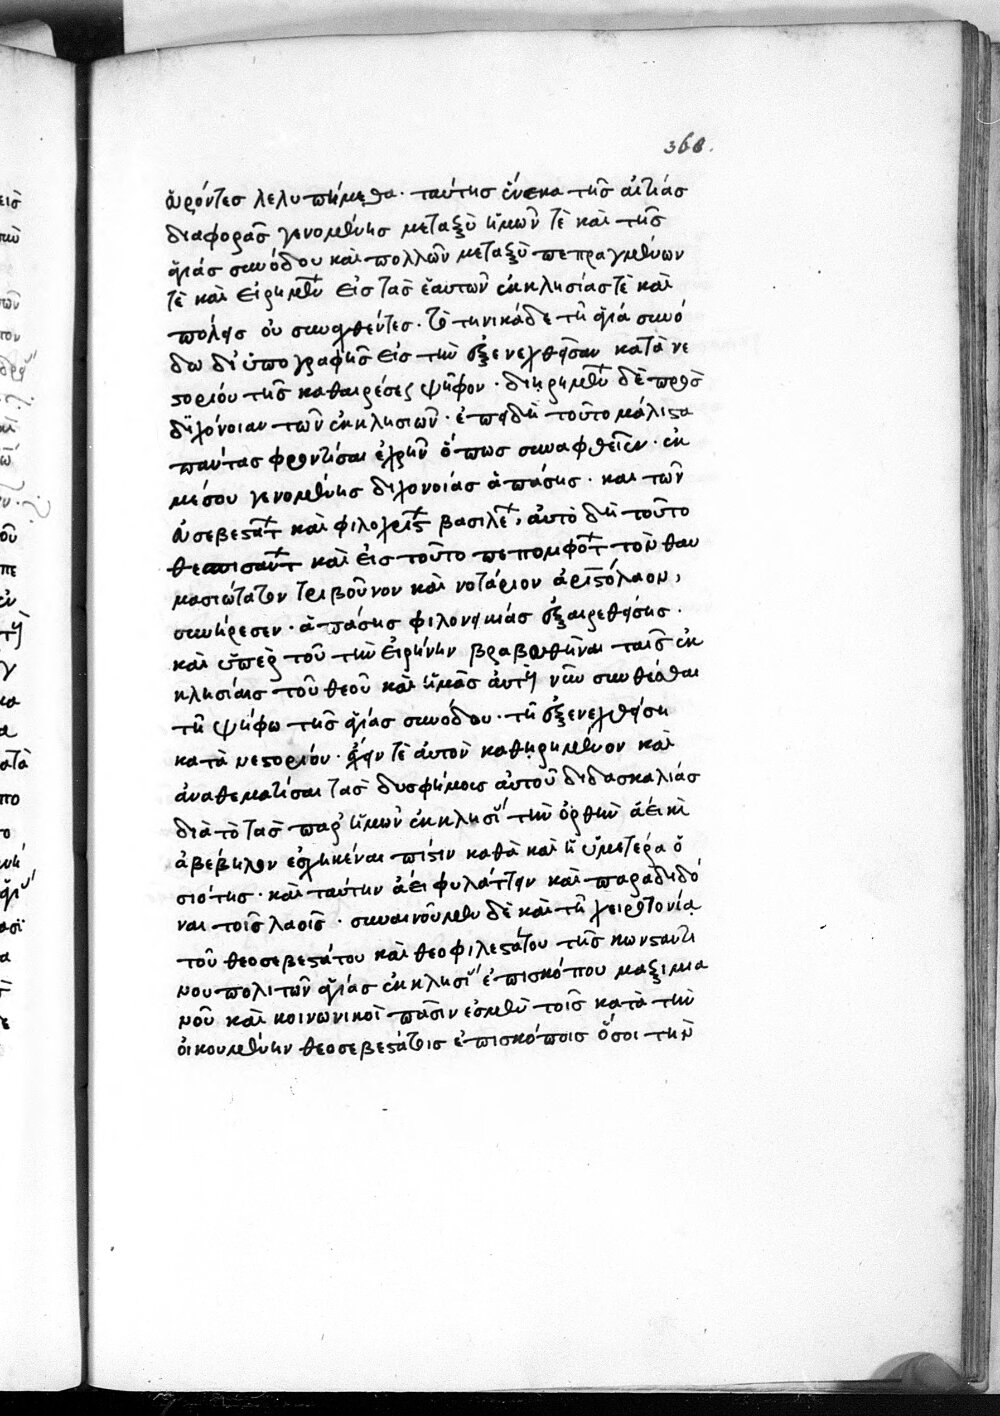 368.
εὑρόντες λελυπήμεθα· ταύτης ἕνεκα τῆς αἰτίας
διαφορᾶς γενομένης μεταξὺ ἡμῶν τὲ καὶ τῆς
ἁγίας συνόδου καὶ πολλῶν μεταξὺ πεπραγμένων
τὲ καὶ εἰρημένων εἰς τὰς ἑαυτῶν ἐκκλησίας τὲ καὶ
πόλεις οὐ συναχθέντες. τὸ τηνικάδε τῇ ἁγία συνό
δω δι' ὑπογραφῆς εἰς τὴν ἐξενεχθεῖσαν κατὰ νε
στορίου τῆς καθαιρέσεως ψῆφον· διῃρημένων δὲ πρὸς
διχόνοιαν τῶν ἐκκλησιῶν· ἐπειδὴ τοῦτο μάλιστα
πάντας φροντίσαι ἐχρῆν ὅπως συναφθεῖεν· ἐκ
μέσου γενομένης διχονοίας ἁπάσης· καὶ τῶν
εὐσεβεστάτων καὶ φιλοχρίστων βασιλέων, αὐτὸ δὴ τοῦτο
θεσπισάντων καὶ εἰς τοῦτο πεπομφότων τὸν θαυ
μασιώτατον τριβοῦνον καὶ νοτάριον ἀριστόλαον,
συνήρεσεν· ἁπάσης φιλονεικίας ἐξαιρεθείσης·
καὶ ὑπὲρ τοῦ τὴν εἰρήνην βραβευθῆναι ταῖς ἐκ
κλησίαις τοῦ θεοῦ καὶ ἡμᾶς αὐτῇ νῦν συνθέσθαι
τῇ ψήφω τῆς ἁγίας συνόδου· τῇ ἐξενεχθείση
κατὰ νεστορίου· ἔχειν τὲ αὐτὸν καθῃρημένον καὶ
ἀναθεματίσαι τὰς δυσφήμοις αὐτοῦ διδασκαλίας
διὰ τὸ τὰς παρ' ἡμῶν ἐκκλησίας τὴν ὀρθὴν ἀεὶ καὶ
ἀβέβηλον ἐσχηκέναι πίστιν καθὰ καὶ ἡ ὑμετέρα ὁ
σιότης· καὶ ταύτην ἀεὶ φυλάττειν καὶ παραδιδό
ναι τοῖς λαοῖς· συναινοῦμεν δὲ καὶ τῇ χειροτονία
τοῦ θεοσεβεστάτου καὶ θεοφιλεστάτου τῆς κωνσταντι
νουπολιτῶν ἁγίας ἐκκλησίας ἐπισκόπου μαξιμια
νοῦ καὶ κοινωνικοὶ πᾶσιν ἐσμὲν τοῖς κατὰ τὴν
οἰκουμένην θεοσεβεστάτοις ἐπισκόποις ὅσοι τὴν